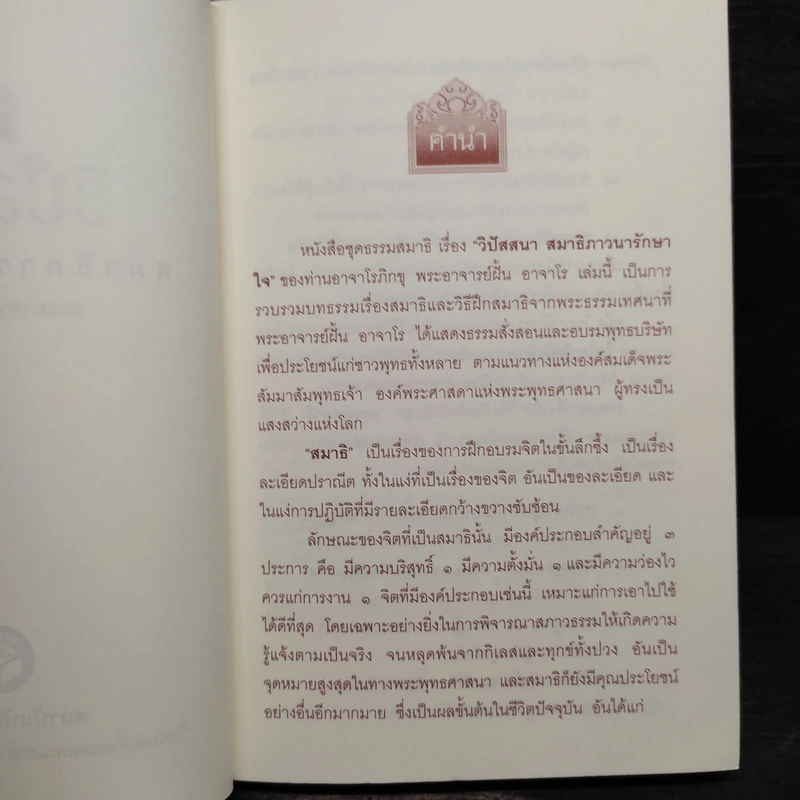 คำนำ
หนังสือชุดธรรมสมาธิ เรื่อง "วิปัสสนา สมาธิภาวนารักษา
ใจ" ของท่านอาจาโรภิกขุ พระอาจารย์ฝั้น อาจาโร เล่มนี้ เป็นการ
รวบรวมบทธรรมเรื่องสมาธิและวิธีฝึกสมาธิจากพระธรรมเทศนาที่
พระอาจารย์ฝั้น อาจาโร ได้แสดงธรรมสั่งสอนและอบรมพุทธบริษัท
เพื่อประโยชน์แก่ชาวพุทธทั้งหลาย ตามแนวทางแห่งองค์สมเด็จพระ
สัมมาสัมพุทธเจ้า องค์พระศาสดาแห่งพระพุทธศาสนา ผู้ทรงเป็น
แสงสว่างแห่งโลก
"สมาธิ" เป็นเรื่องของการฝึกอบรมจิตในขั้นลึกซึ้ง เป็นเรื่อง
ละเอียดปราณีต ทั้งในแง่ที่เป็นเรื่องของจิต อันเป็นของละเอียด และ
ในแง่การปฏิบัติที่มีรายละเอียดกว้างขวางซับซ้อน
ลักษณะของจิตที่เป็นสมาธินั้น มีองค์ประกอบสำคัญอยู่ ๓
ประการ คือ มีความบริสุทธิ์ ๑ มีความตั้งมั่น ๑ และมีความว่องไว
ควรแก่การงาน ๑ จิตที่มีองค์ประกอบเช่นนี้ เหมาะแก่การเอาไปใช้
ได้ดีที่สุด โดยเฉพาะอย่างยิ่งในการพิจารณาสภาวธรรมให้เกิดความ
รู้แจ้งตามเป็นจริง จนหลุดพ้นจากกิเลสและทุกข์ทั้งปวง อันเป็น
จุดหมายสูงสุดในทางพระพุทธศาสนา และสมาธิก็ยังมีคุณประโยชน์
อย่างอื่นอีกมากมาย ซึ่งเป็นผลขั้นต้นในชีวิตปัจจุบัน อันได้แก่